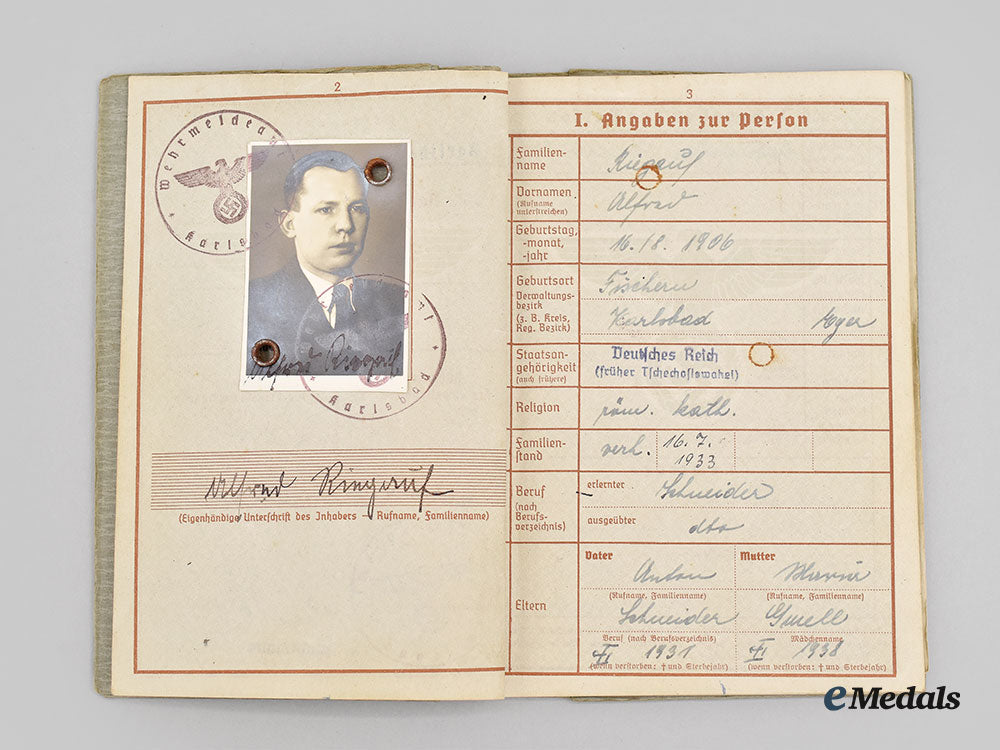 2
Wehrmeldeamt
Karlsbad
Alfred Riegauf
Karlsbad
Alfred Riegauf
(Eigenhändige Unterschrift des Inhabers — Rufname, Familienname)
3
I. Angaben zur Person
Familien-
name
Riegauf
Vornamen
(Rufname
unterstreichen)
Alfred
Geburtstag,
-monat,
-jahr
16.8. 1906
Geburtsort
Verwaltungs-
bezirk
(z. B. Kreis,
Reg. Bezirk)
Fischern
Karlsbad Eger
Staatsan-
gehörigkeit
(auch frühere)
Deutsches Reich
(früher Tschechoslowakei)
Religion
röm. kath.
Familien-
stand
verh. 16.7.
1933
Beruf
(nach
Berufs-
verzeichnis)
erlernter
Schneider
ausgeübter
dto
Eltern
Vater Mutter
Anton Maria
(Rufname, Familienname) (Rufname, Familienname)
Schneider
Beruf (nach Berufsverzeichnis) Mädchenname
1931 1938
(wenn verstorben: † und Sterbejahr) (wenn verstorben: † und Sterbejahr)
eMedals